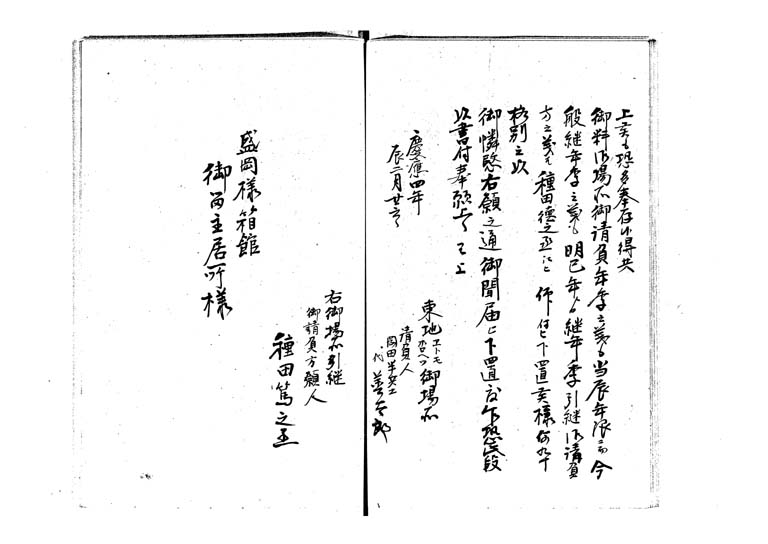 上候も恐多奉存候得共
御料御場所御請負年季之義も当辰年限ニ而今
般継年季之義も明巳年ゟ継年季引継御請負
方之義も種田徳之丞江被 仰付被下置候様何卒
格別之以
御憐愍右願之通御聞届被下置度乍恐此段
以書付奉願上候 以上
慶應四年
辰二月廿
東地エトモ 御場所
請負人
岡田半兵衛
代 善太郎
右御場所引継
御請負方願人
種田篤之丞
盛岡様箱館
御留主居所様